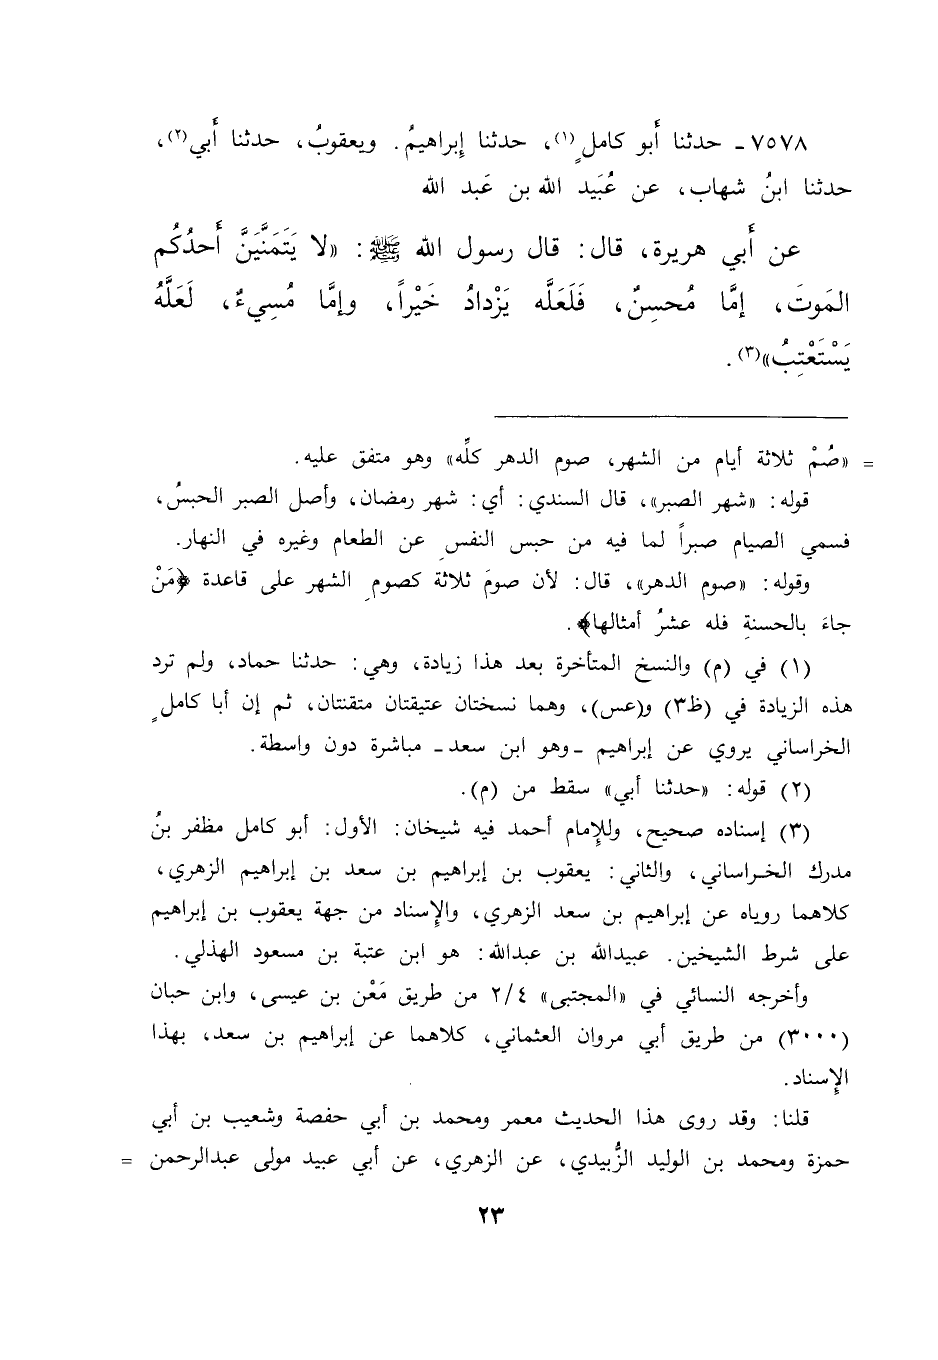 ٧٥٧٨ ـ حدثنا أَبو كامل(١)ٍ، حدثنا إِبراهيمُ. ويعقوبُ، حدثنا أَبي(٢)،
حدثنا ابنُ شهاب، عن عُبَيد الله بن عَبد الله
عن أَبي هريرة، قال: قال رسول الله ﷺ: «لا يَتَمَنَّيَنَّ أَحدُكُم
المَوتَ، إِمَّا مُحسِنٌ، فَلَعَلَّه يَزْدادُ خَيْراً، وإِمَّا مُسِيءٌ، لَعَلَّهُ
يَسْتَعْتِبُ»(٣).
= «صُمْ ثلاثة أيام من الشهر، صوم الدهر كلِّه» وهو متفق عليه.
قوله: «شهر الصبر»، قال السندي: أي: شهر رمضان، وأصل الصبر الحبسُ،
فسمي الصيام صبراً لما فيه من حبس النفسِ عن الطعام وغيره في النهار.
وقوله: «صوم الدهر»، قال: لأن صومَ ثلاثة كصومِ الشهر على قاعدة ﴿مَنْ
جاءَ بالحسنةِ فله عشرُ أمثالها﴾.
(١) في (م) والنسخ المتأخرة بعد هذا زيادة، وهي: حدثنا حماد، ولم ترد
هذه الزيادة في (ظ٣) و(عس)، وهما نسختان عتيقتان متقنتان، ثم إن أبا كاملٍ
الخراساني يروي عن إبراهيم ـ وهو ابن سعد ـ مباشرة دون واسطة.
(٢) قوله: «حدثنا أبي» سقط من (م).
(٣) إسناده صحيح، وللإمام أحمد فيه شيخان: الأول: أبو كامل مظفر بنُ
مدرك الخراساني، والثاني: يعقوب بن إبراهيم بن سعد بن إبراهيم الزهري،
كلاهما روياه عن إبراهيم بن سعد الزهري، والإسناد من جهة يعقوب بن إبراهيم
على شرط الشيخين. عبيدالله بن عبدالله: هو ابن عتبة بن مسعود الهذلي.
وأخرجه النسائي في «المجتبى» ٢/٤ من طريق مَعْن بن عيسى، وابن حبان
(٣٠٠٠) من طريق أبي مروان العثماني، كلاهما عن إبراهيم بن سعد، بهذا
الإسناد.
قلنا: وقد روى هذا الحديث معمر ومحمد بن أبي حفصة وشعيب بن أبي
حمزة ومحمد بن الوليد الزُّبيدي، عن الزهري، عن أبي عبيد مولى عبدالرحمن =
٢٣